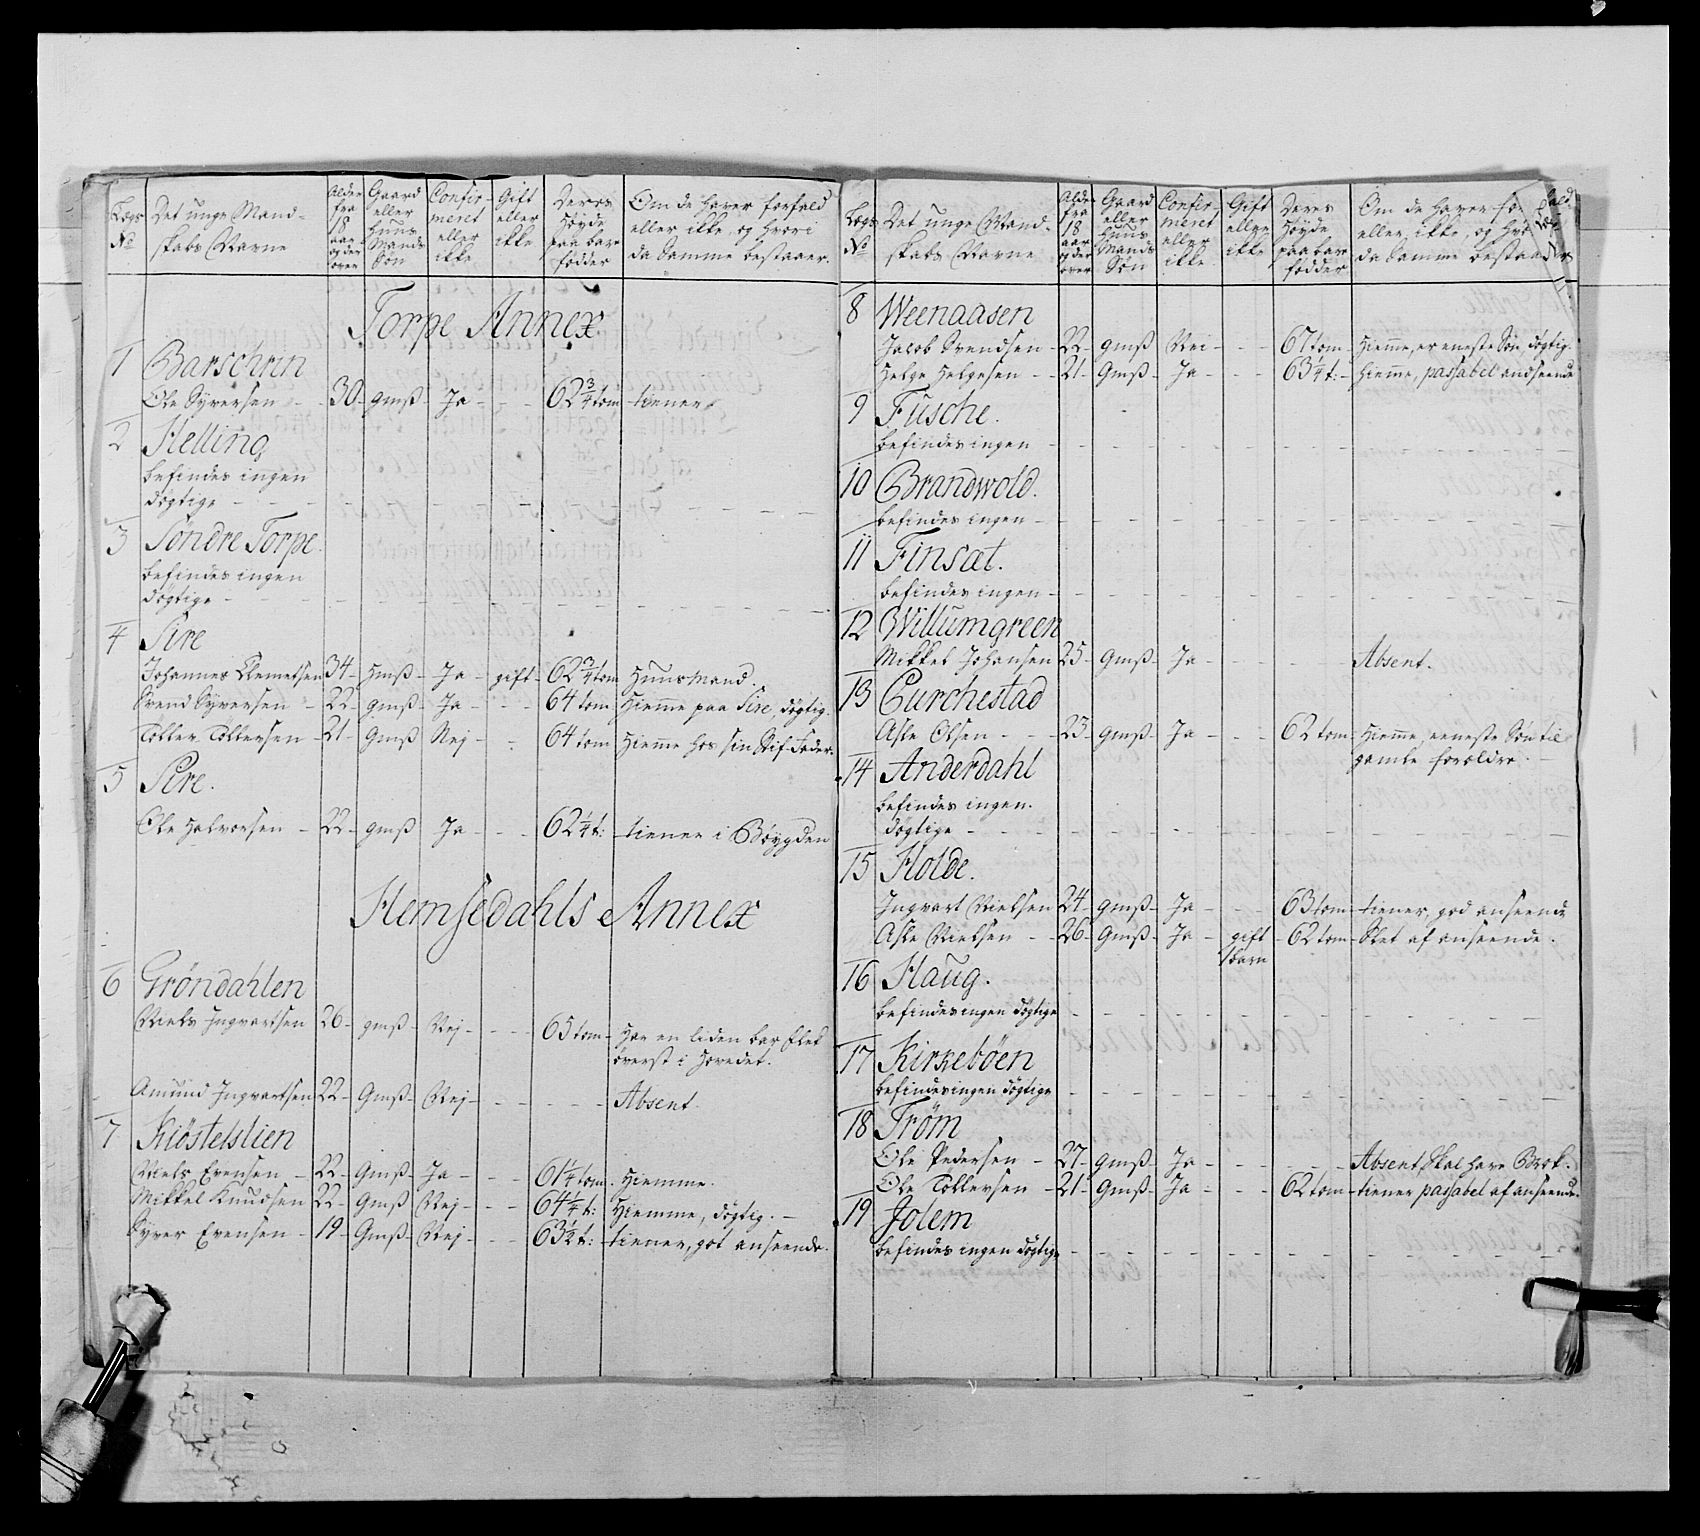 Lægs No | Det unge Mand-skabs Navne | Alder fra 18 aar og der over | Gaard eller Huus Mands Søn | Confir-meret eller ikke | Gift eller ikke | Deres Høyde paa bare fødder | Om de haver forfald eller ikke, og hvori da Samme bestaaer.
Torpe Annex
1 Barschrin
Ole Syversen - 30 - gmß - Ja - - - 62 3/4 tom - tiener
2 Helling
befindes ingen
døgtige - - -
3 Søndre Torpe.
befindes ingen
døgtige - - -
4 Sire
Johannes Clemetsen 34 - Hmß - Ja - gift - 62 3/4 tom Huusmand.
Svend Syversen - 22 - gmß - Ja - - - 64 tom Hiemme paa Sire, døgtig.
Toller Tollersen - 21 - Gmß Nej - - 64 tom Hiemme hos sin Stif-Fader.
5 Sire.
Ole Halvorsen - 22 - gmß Ja - - - 62 1/4 t: - tiener i Bøygden
Hemsedahls Annex
6 Grøndahlen
Niels Ingvartsen 26 - gmß - Nej - - - 65 tom - Har en liden bar Flek
øverst i Hovedet.
Amund Ingvartsen 22 - Gmß - Nej - - - - Absent.
7 Kiøstelslien
Niels Evensen - 22 - Gmß - Ja - - - 61 1/4 tom. Hiemme.
Mikkel Knudsen 22 - Gmß Nej - - - 64 1/4 t: Hiemme, døgtig. -
Syver Evensen - 19 - Gmß - Nej - - - 63 1/2 t: - tiener, got anseende.
Lægs No | Det unge Mand-skabs Navne | Alder fra 18 aar og der over | Gaard eller Huus Mands Søn | Confir-meret eller ikke | Gift eller ikke | Deres Høyde paa bare fødder | Om de haver eller ikke, og da Samme bestaaer
8 Weenaasen
Jacob Svendsen - 22 - gmß Nei - - - 67 tom - Hiemme, er eneste Søn, døgtig.
Helge Helgesen - - 21 - Gmß - Ja - - - 63 1/4 t: - Hiemme, passabel andseende
9 Fusche.
befindes ingen - - -
10 Brandwold.
befindes ingen - - -
11 Finsæt.
befindes ingen - - -
12 Willumgreen
Mikkel Johansen 25 - Gmß - Ja - - - - Absent.
13 Eurchestad
Asle Olsen - - - 23 - gmß - Ja - - - 62 tom - Hiemme, eeneste Søn til
gamle forældre. -
14 Anderdahl
befindes ingen.
døgtige - - -
15 Holde.
Ingvart Nielsen 24 - gmß - Ja - - - 63 tom - tiener, god anseende
Asle Nielsen - - 26 - Gmß - Ja - gift - 62 tom - Slet af anseende.
barn
16 Haug.
befindes ingen døgtige - - -
17 Kirkebøen
befindes ingen døgtige - - -
18 Trøm
Ole Pedersen - 27 - gmß - Ja - - - - Absent, skal have Brok.
Ole Tollersen - 21 - Gmß - Ja - - - 62 tom - tiener passabel af anseende.
19 Jolem
befindes ingen døgtige - - -